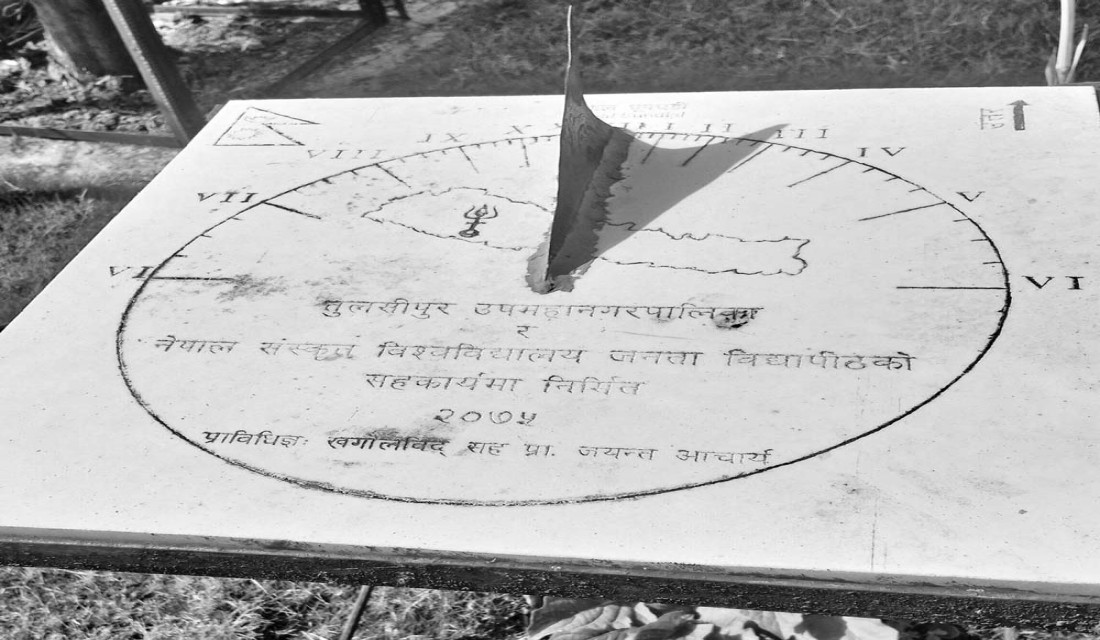 VI VII VIII IX X I II III IV V VI
तुलसीपुर उपमहानगरपालिका
र
नेपाल संस्कृत विश्वविद्यालय जनता विद्यापीठको
सहकार्यमा निर्मित
२०७५
प्राविधिज्ञः खगोलविद् सह प्रा. जयन्त आचार्य